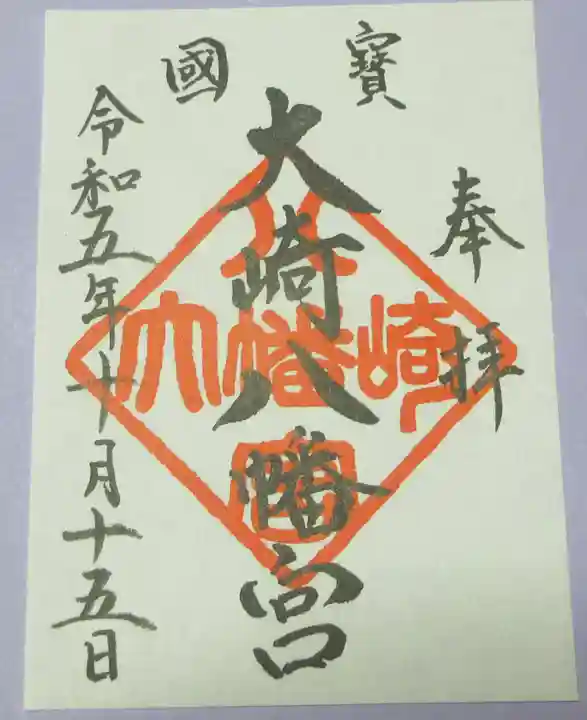 國寶
奉拝
大崎八幡宮
令和五年十月十五日
大崎八幡宮